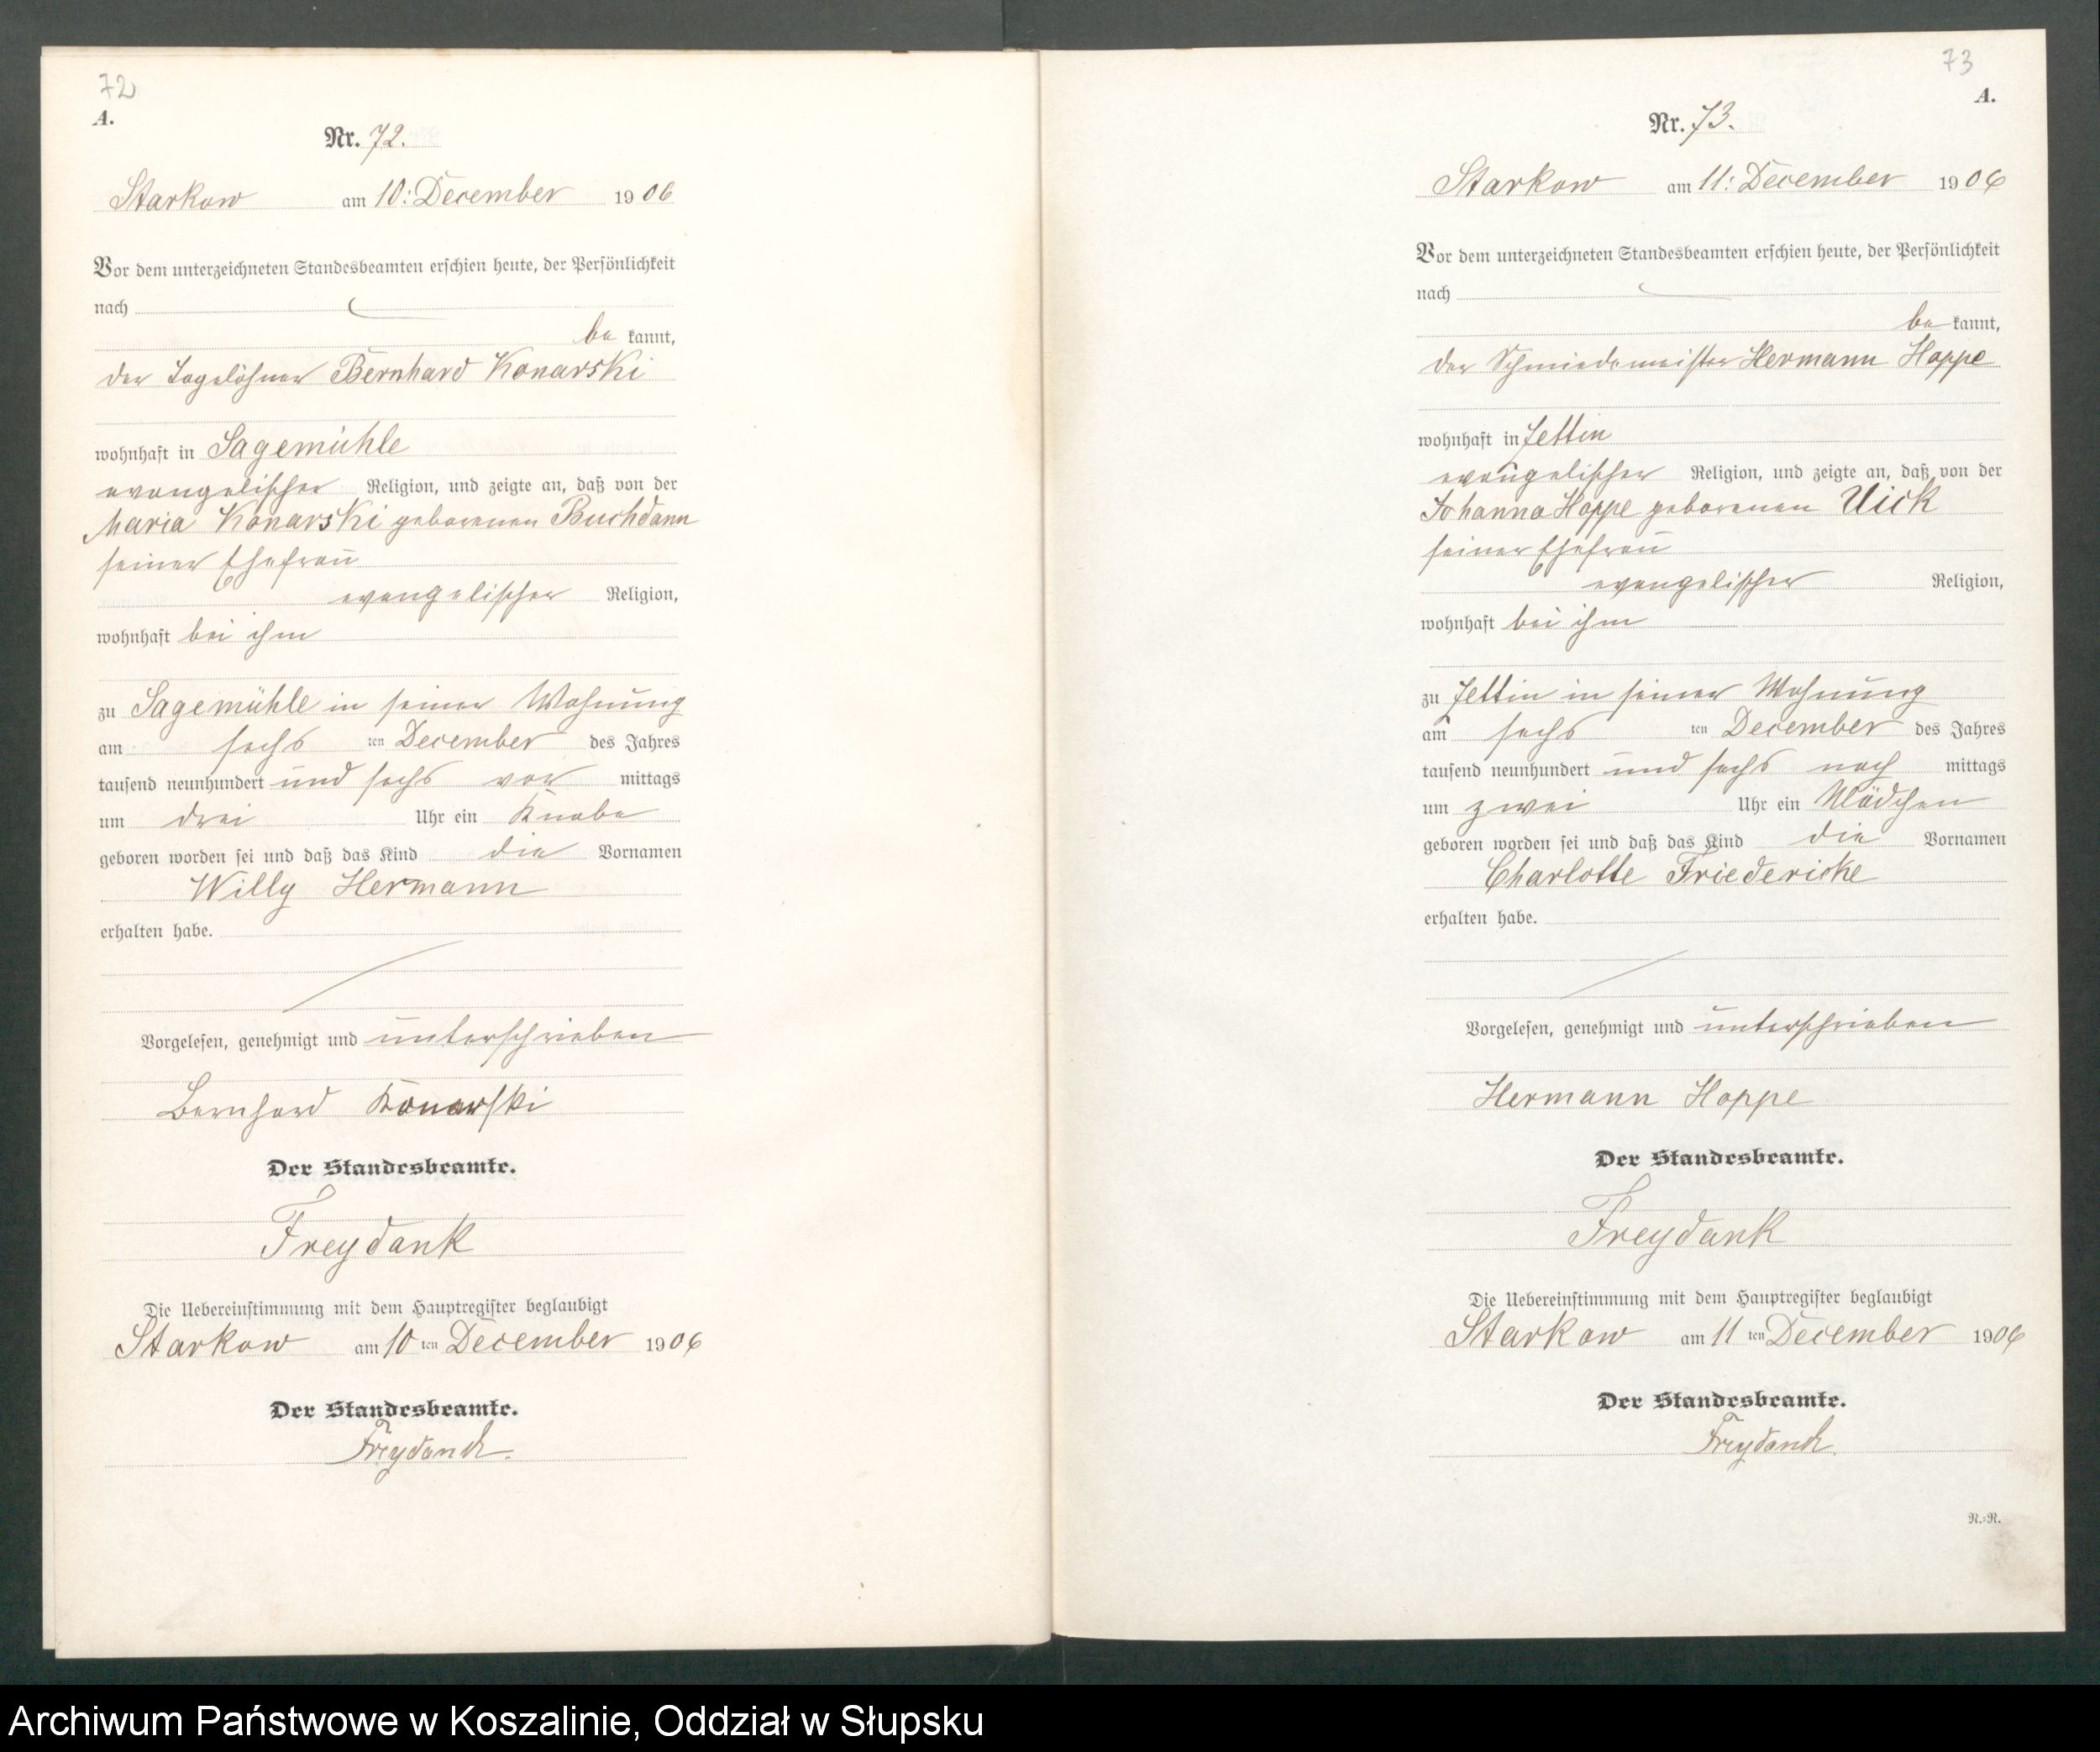 72
A.
Nr. 72.
Starkow am 10: December 1906
Vor dem unterzeichneten Standesbeamten erschien heute, der Persönlichkeit
nach
be kannt,
der Tagelöhner Bernhard Konarski
wohnhaft in Sagemühle
evangelischer Religion, und zeigte an, daß von der
Maria Konarski geborenen Buchdann
seiner Ehefrau
evangelischer Religion,
wohnhaft bei ihm
zu Sagemühle in seiner Wohnung
am sechs ten December des Jahres
tausend neunhundert und sechs vor mittags
um drei Uhr ein Knabe
geboren worden sei und daß das Kind die Vornamen
Willy Hermann
erhalten habe.
Vorgelesen, genehmigt und unterschrieben
Bernhard Konarski
Der Standesbeamte.
Freydank
Die Uebereinstimmung mit dem Hauptregister beglaubigt
Starkow am 10 ten December 1906
Der Standesbeamte.
Freydank.
73
A.
Nr. 73.
Starkow am 11: December 1906
Vor dem unterzeichneten Standesbeamten erschien heute, der Persönlichkeit
nach
be kannt,
der Schmiedemeister Hermann Hoppe
wohnhaft in Zettin
evangelischer Religion, und zeigte an, daß von der
Johanna Hoppe geborenen Uick
seiner Ehefrau
evangelischer Religion,
wohnhaft bei ihm
zu Zettin in seiner Wohnung
am sechs ten December des Jahres
tausend neunhundert und sechs nach mittags
um zwei Uhr ein Mädchen
geboren worden sei und daß das Kind die Vornamen
Charlotte Friedericke
erhalten habe.
Vorgelesen, genehmigt und unterschrieben
Hermann Hoppe
Der Standesbeamte.
Freydank
Die Uebereinstimmung mit dem Hauptregister beglaubigt
Starkow am 11 ten December 1906
Der Standesbeamte.
Freydank.
N.=N.
Archiwum Państwowe w Koszalinie, Oddział w Słupsku